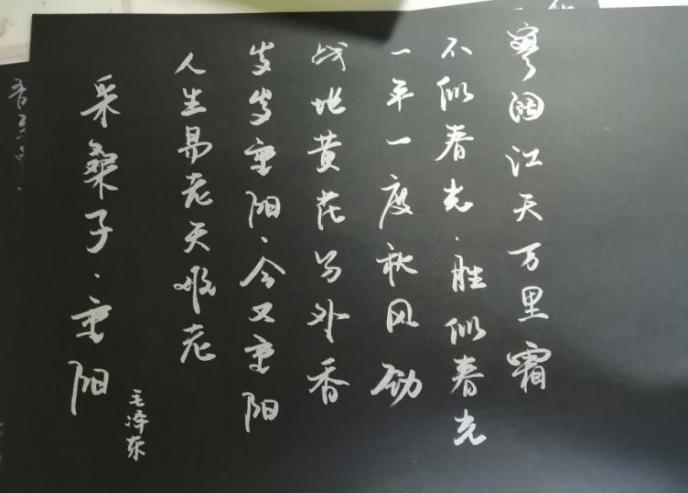 采桑子·重阳
毛泽东
人生易老天难老
岁岁重阳·今又重阳
战地黄花分外香
一年一度秋风劲
不似春光·胜似春光
寥阔江天万里霜